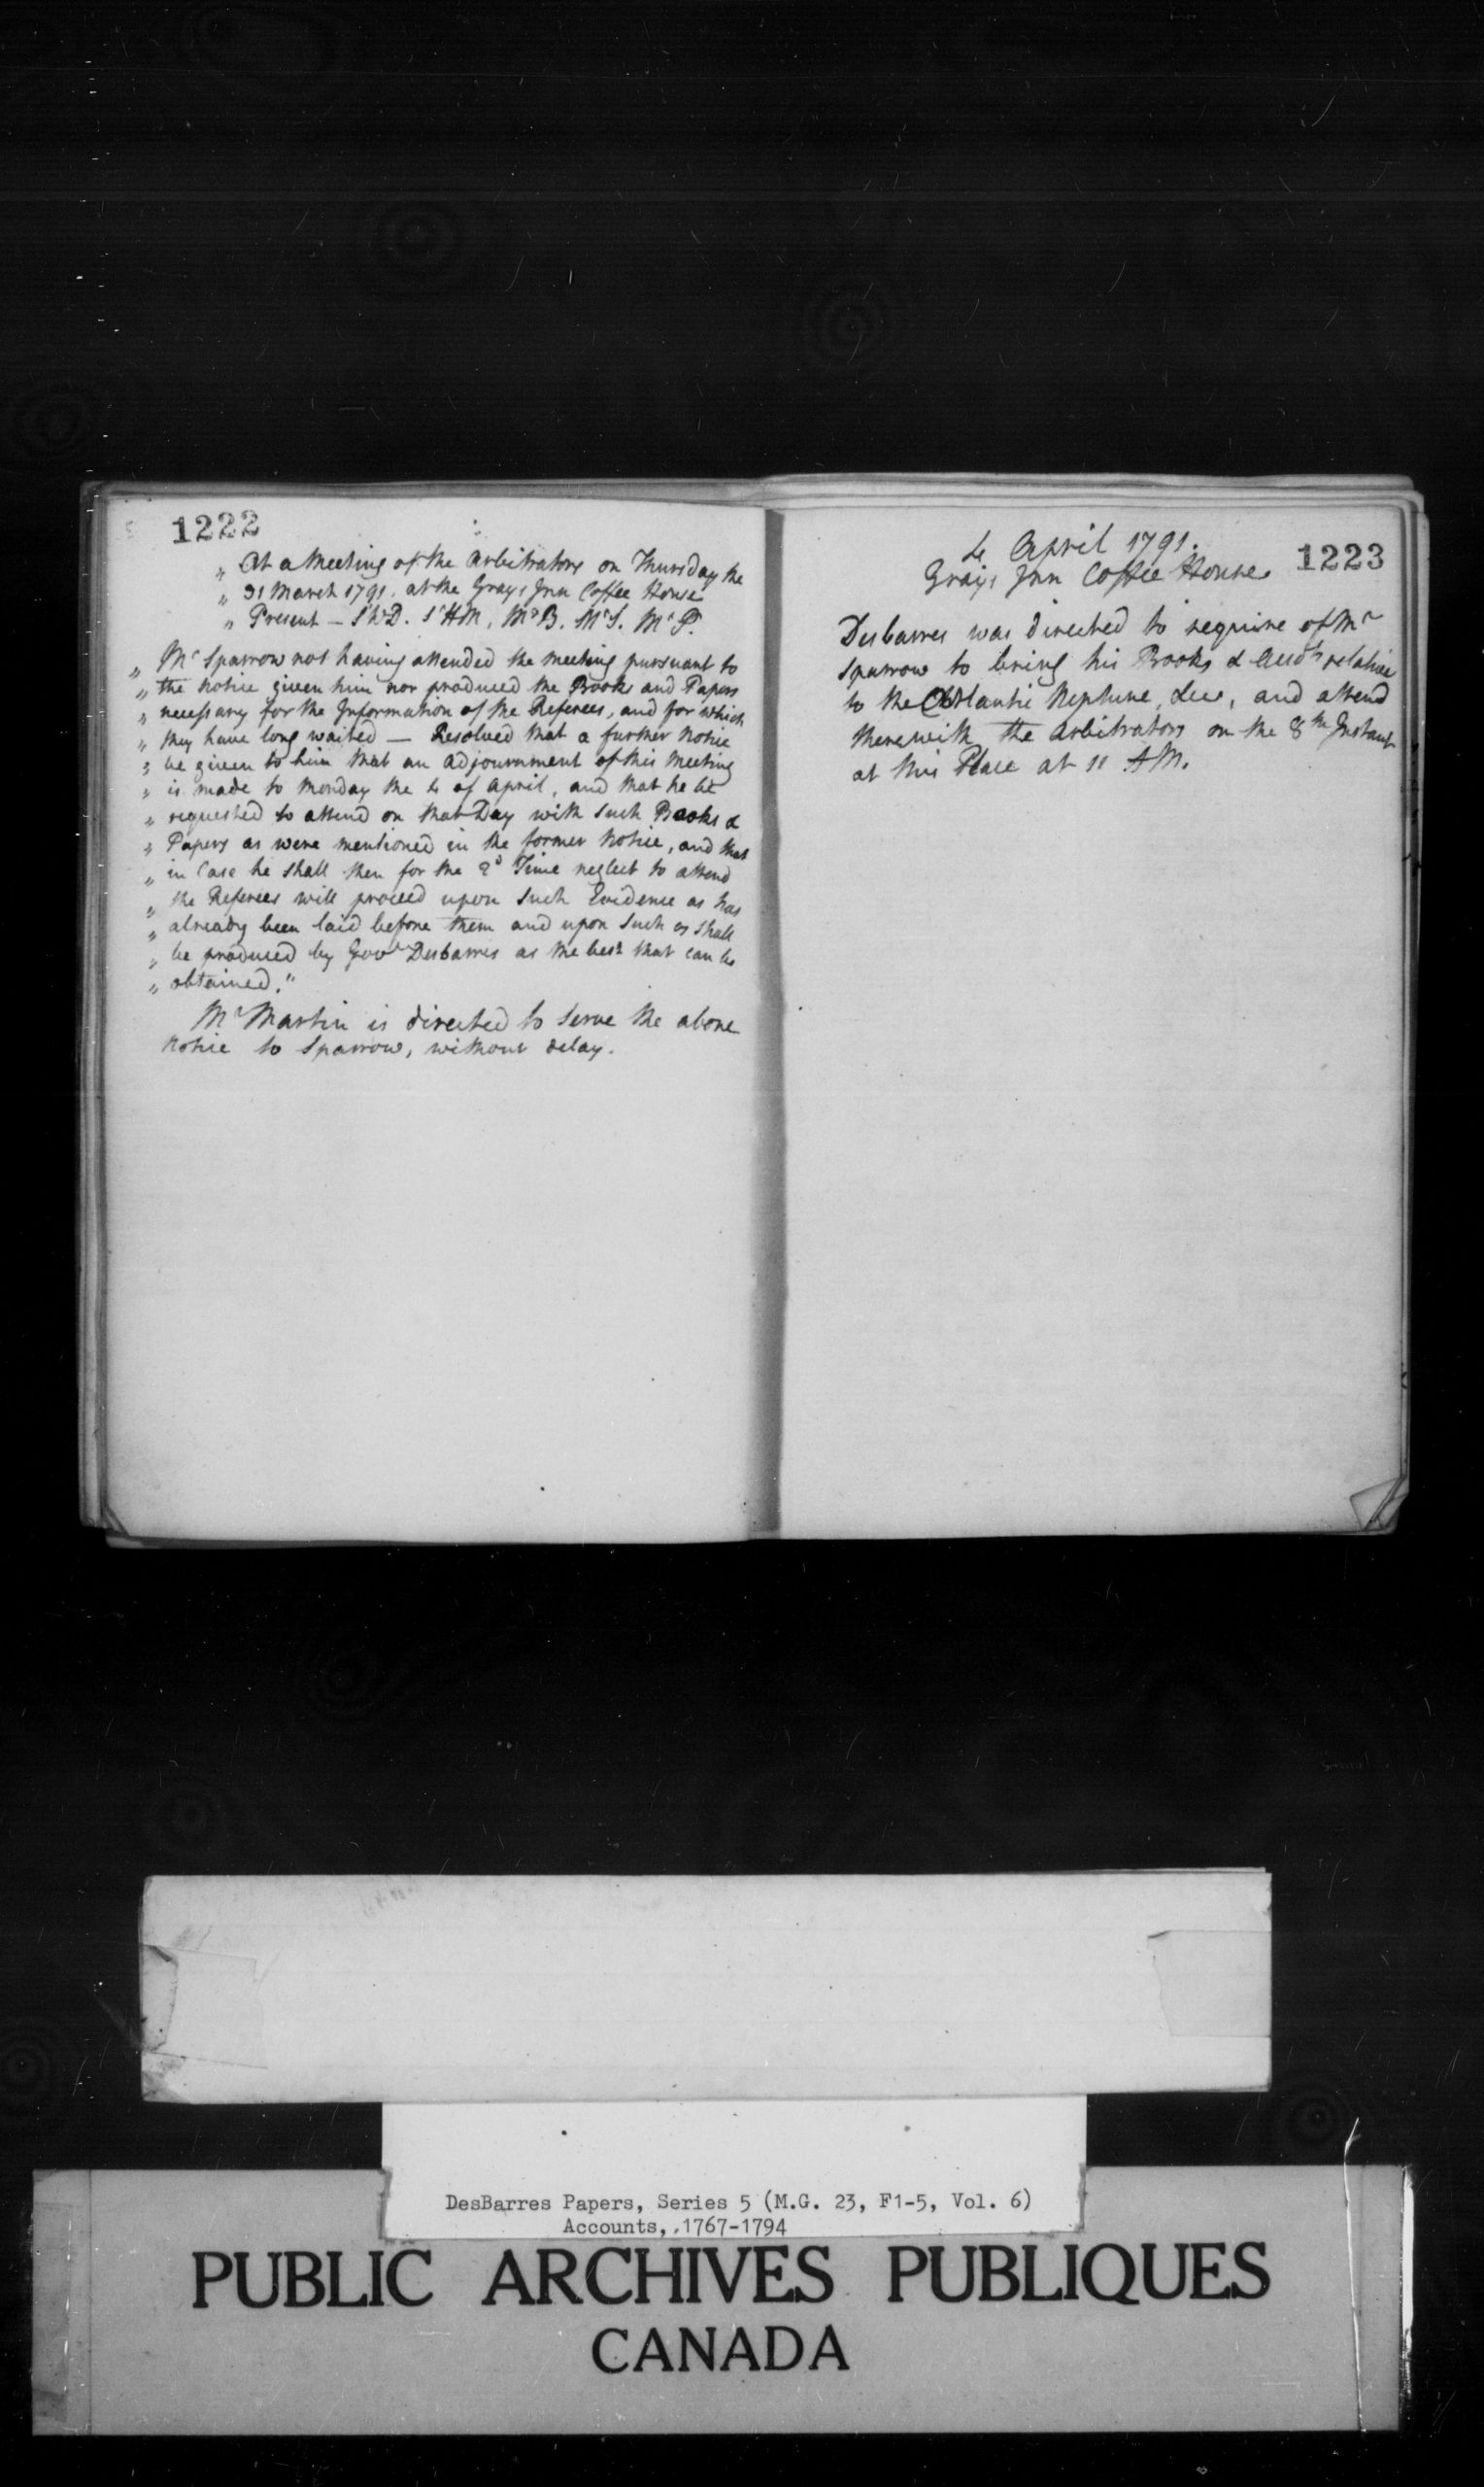 1222
„ At a Meeting of the Arbitrators on Thursday the
„ 31 March 1791. at the Grays Inn Coffee House
„ Present — S.r W.D. S.r H M, M.r B. M.r S. M.r P.
„ M.r Sparrow not having attended the meeting pursuant to
„ the notice given him nor produced the Books and Papers
„ necessary for the Information of the Referees, and for which
„ they have long waited — Resolved that a further notice
„ be given to him that an adjournment of this Meeting
„ is made to Monday the 4 of April, and that he be
„ requested to attend on that Day with such Books &
„ Papers as were mentioned in the former notice, and that
„ in Case he shall then for the 2d Time neglect to attend
„ the Referees will proceed upon such Evidence as has
„ already been laid before them and upon such as shall
„ be produced by Gov.r Desbarres as the best that can be
„ obtained."
M.r Martin is directed to serve the above
notice to Sparrow, without delay.
4 April 1791.
Grays Inn Coffee House
1223
Desbarres was directed to require of M.r
Sparrow to bring his Books & relative
to the Atlantic Neptune, and attend
therewith the Arbitrators on the 8th Instant
at this Place at 11 AM.
DesBarres Papers, Series 5 (M.G. 23, F1-5, Vol. 6)
Accounts, 1767-1794
PUBLIC ARCHIVES PUBLIQUES
CANADA